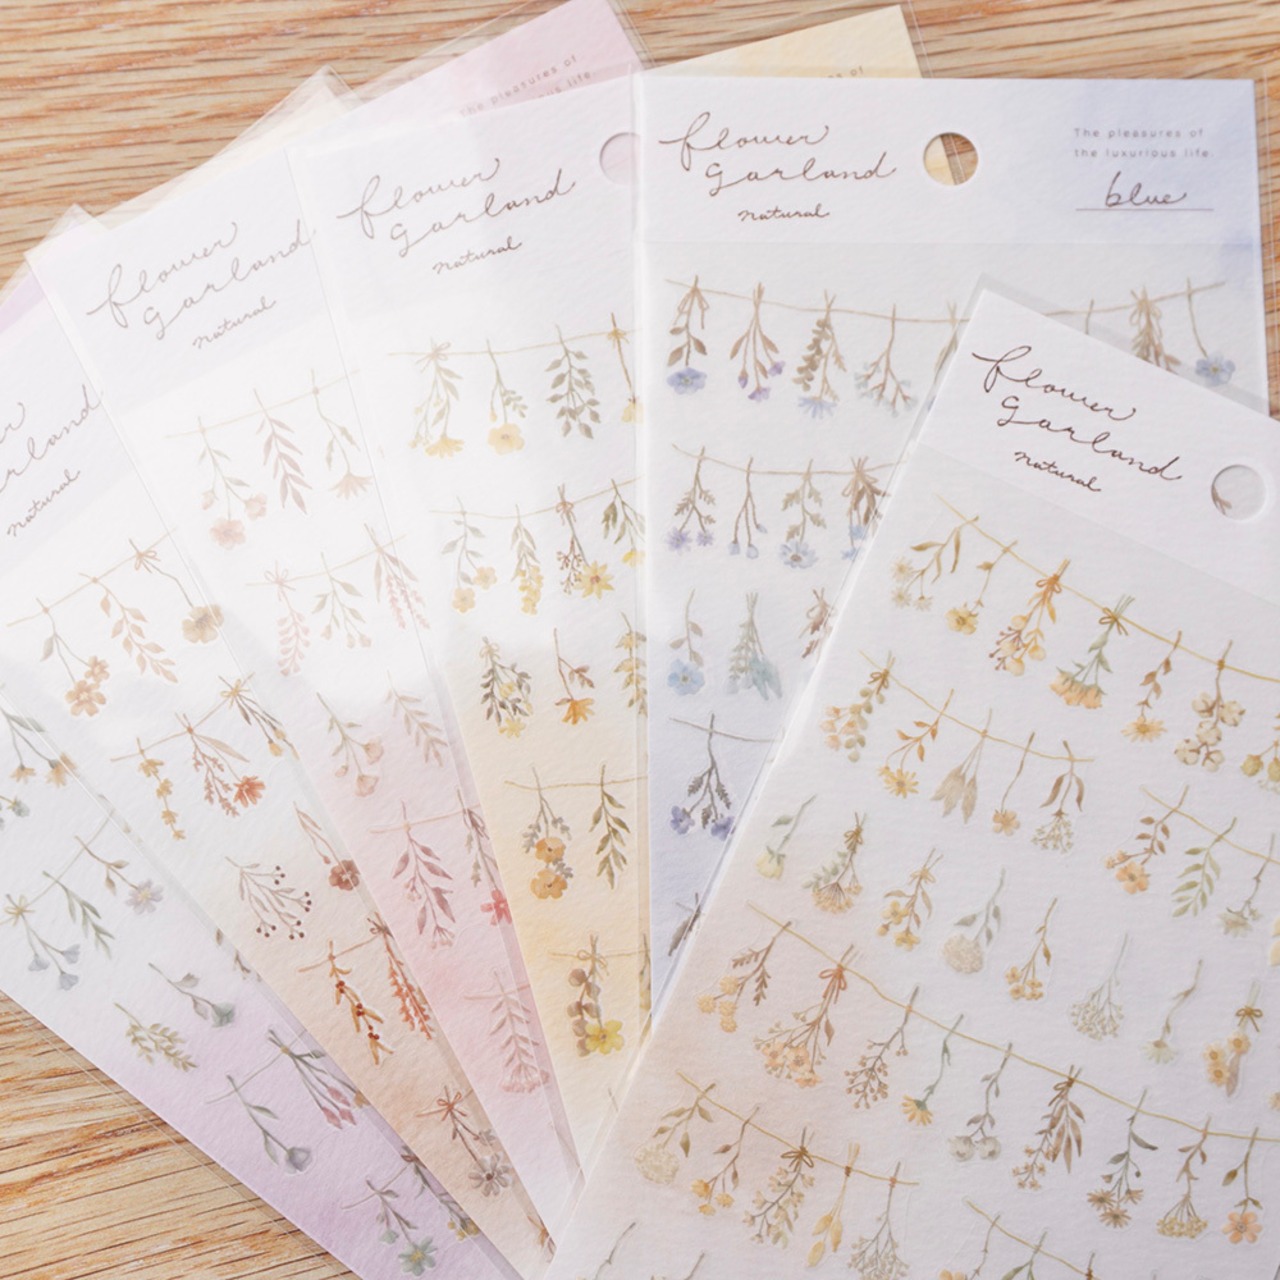 The pleasures of
ous life.
s of
flower
garland
natural
The pleasures of
the luxurious life.
blue
flower
garland
natural
flower
garland
natural
er
arland
natural
flower
garland
natural